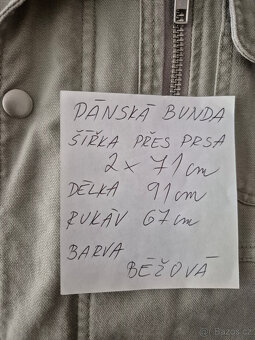 DÁNSKÁ BUNDA
ŠÍŘKA PŘES PRSA
2 x 71 cm
DÉLKA 91 cm
RUKÁV 67 cm
BARVA
BÉŽOVÁ
Bazos.cz